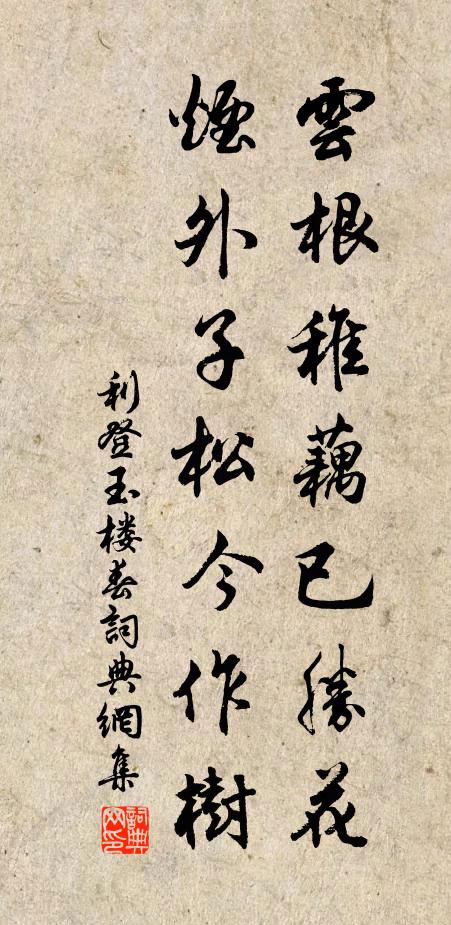 雲根稚藕已勝花
煙外子松今作樹
利登玉楼春詞典網集
詞典网印